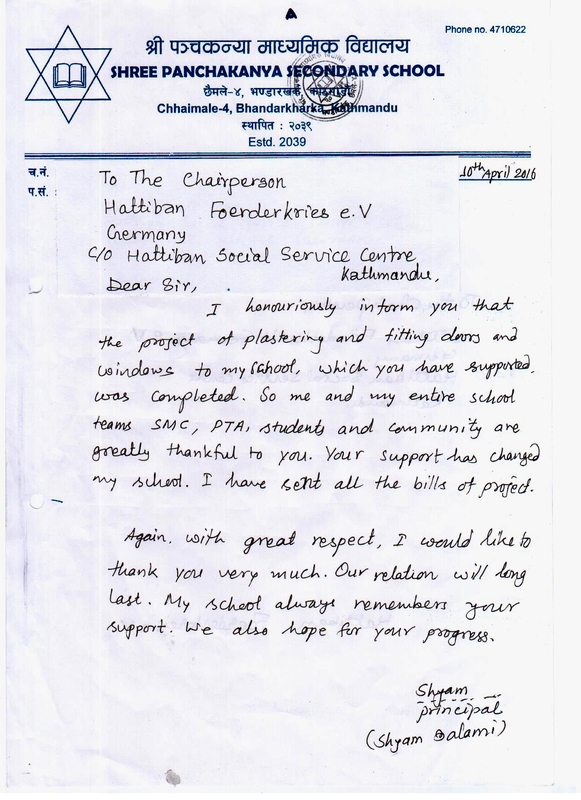 A
Phone no. 4710622
श्री पञ्चकन्या माध्यमिक विद्यालय
SHREE PANCHAKANYA SECONDARY SCHOOL
छैमले-४, भण्डारखर्क, काठमाडौं
Chhaimale-4, Bhandarkharka, Kathmandu
स्थापित : २०३९
Estd. 2039
च.नं.
10th April 2016
प.सं. :
To The Chairperson
Hattiban Foerderkries e.V
Germany
C/O Hattiban Social Service Centre
Kathmandu,
Dear Sir,
I honouriously inform you that
the project of plastering and fitting doors and
windows to my school, which you have supported,
was completed. So me and my entire school
teams SMC, PTA, students and community are
greatly thankful to you. Your support has changed
my school. I have sent all the bills of project.
Again, with great respect, I would like to
thank you very much. Our relation will long
last. My school always remembers your
support. We also hope for your progress.
Shyam
principal
(Shyam Balami)